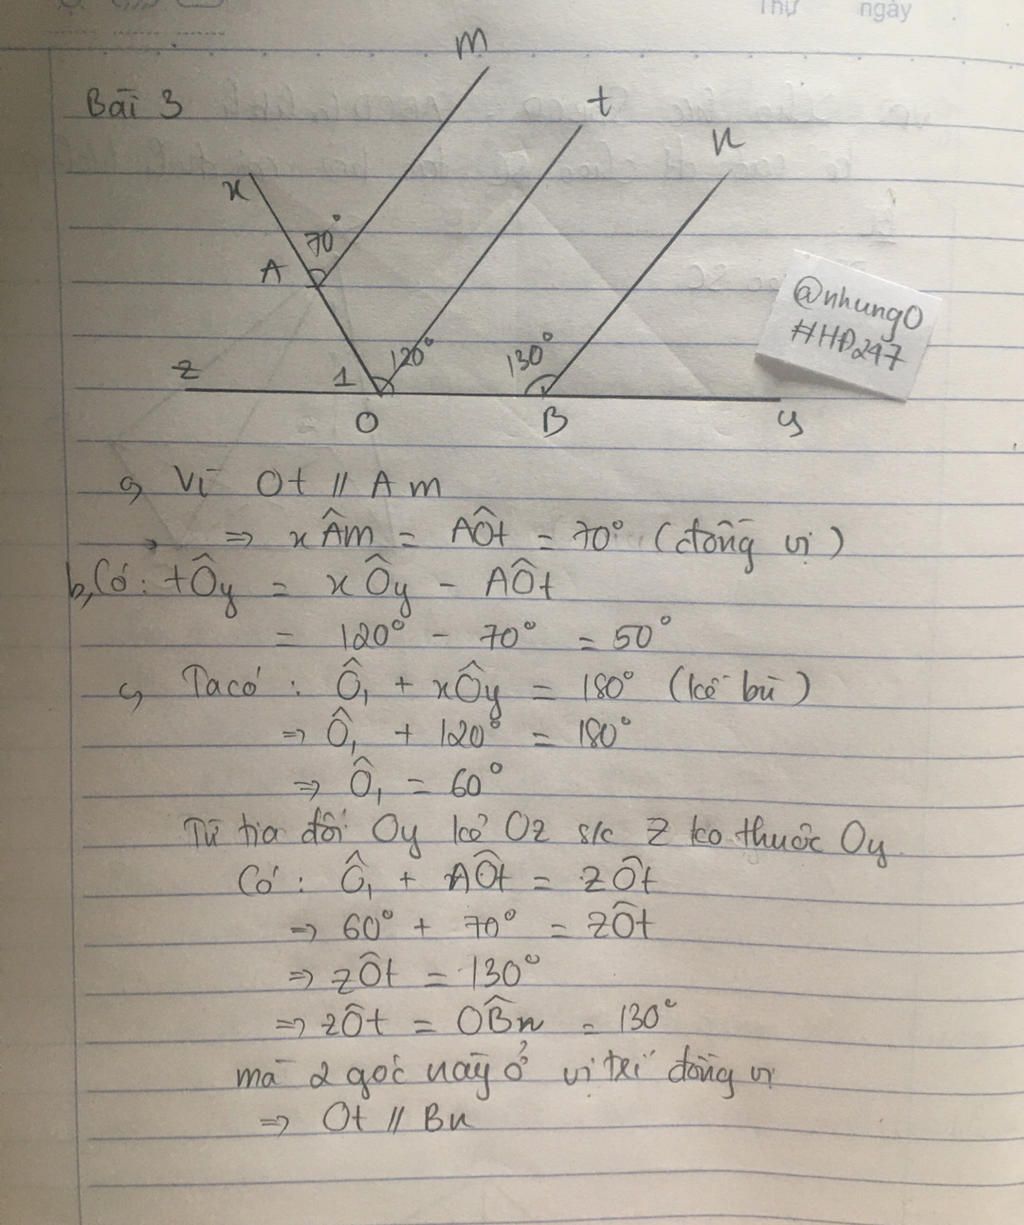 Thứ ngày
Bài 3
m
t
n
x
70°
A
@nhung0
#HĐ247
z
1
120°
130°
O
B
y
a, Vì Ot // Am
=> xÂm = AÔt = 70° (đồng vị)
b, Có: tÔy = xÔy - AÔt
= 120° - 70° = 50°
c, Ta có: Ô₁ + xÔy = 180° (kề bù)
=> Ô₁ + 120° = 180°
=> Ô₁ = 60°
Từ tia đối Oy kẻ Oz s/c Z ko thuộc Oy
Có: Ô₁ + AÔt = zÔt
=> 60° + 70° = zÔt
=> zÔt = 130°
=> zÔt = OB̂n = 130°
mà 2 góc này ở vị trí đồng vị
=> Ot // Bn